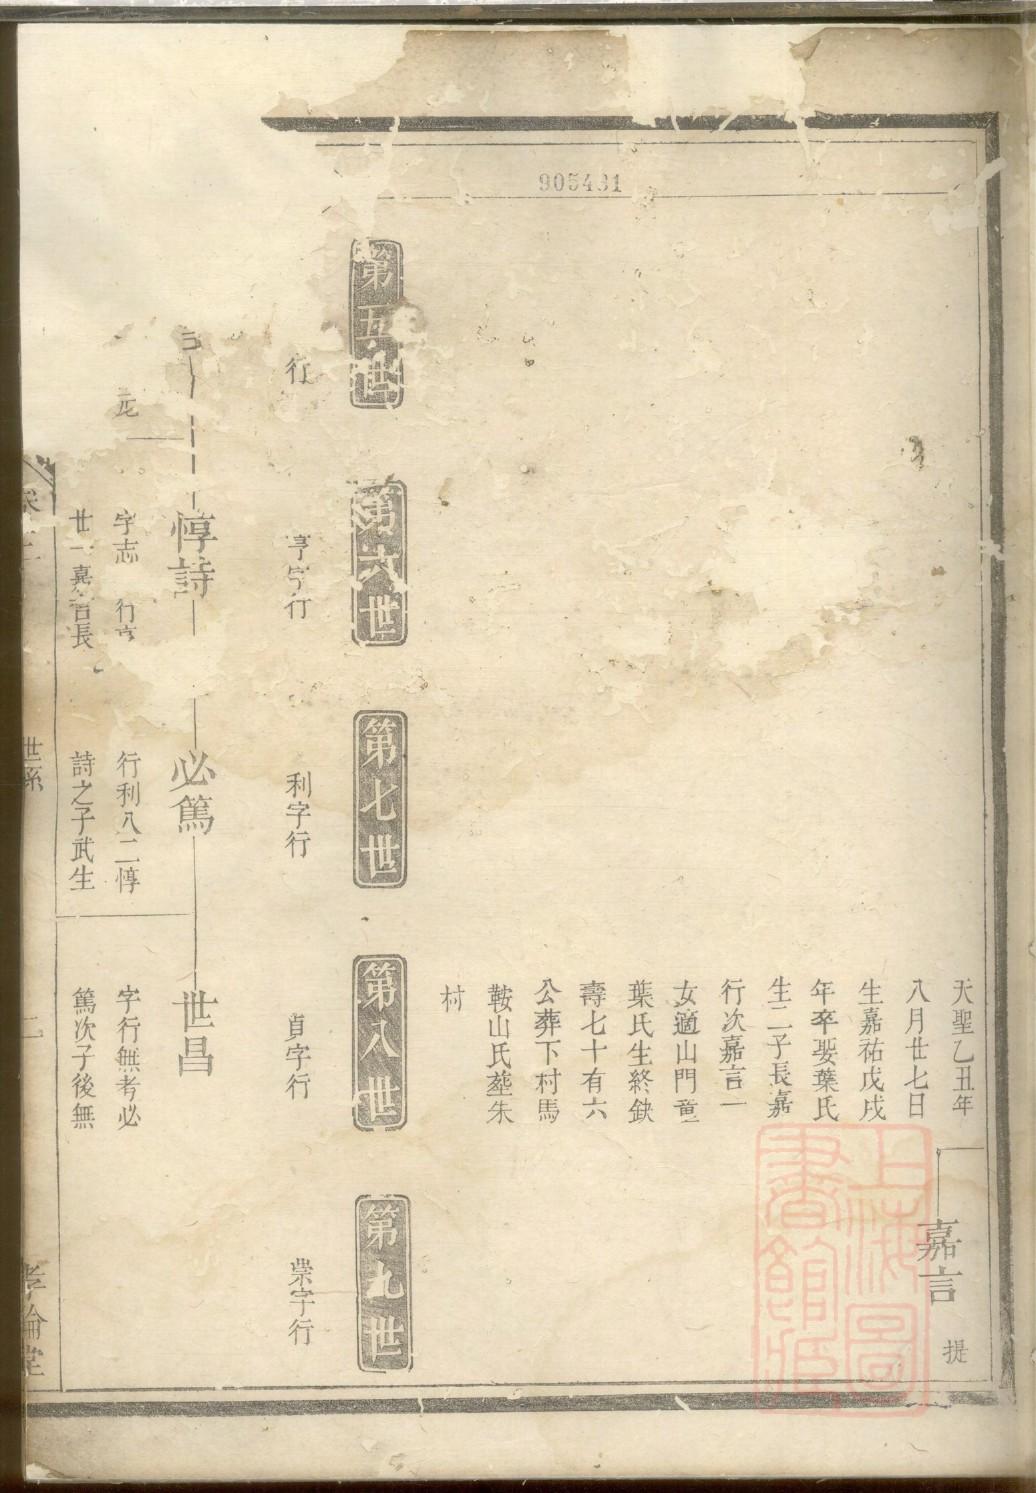 905431
天聖乙丑年
八月廿七日
生嘉祐戊戌
年卒娶葉氏
生二子長嘉
行次嘉言一
女適山門童
葉氏生終缺
壽七十有六
公葬下村馬
鞍山氏塟朱
村
嘉言
提
第五世
第六世
第七世
第八世
第九世
行
亨字行
利字行
貞字行
榮字行
惇詩
必篤
世昌
字志 行亨
廿一嘉言長
行利八二惇
詩之子武生
字行無考必
篤次子後無
世系
二
孝倫堂
上海圖書館藏